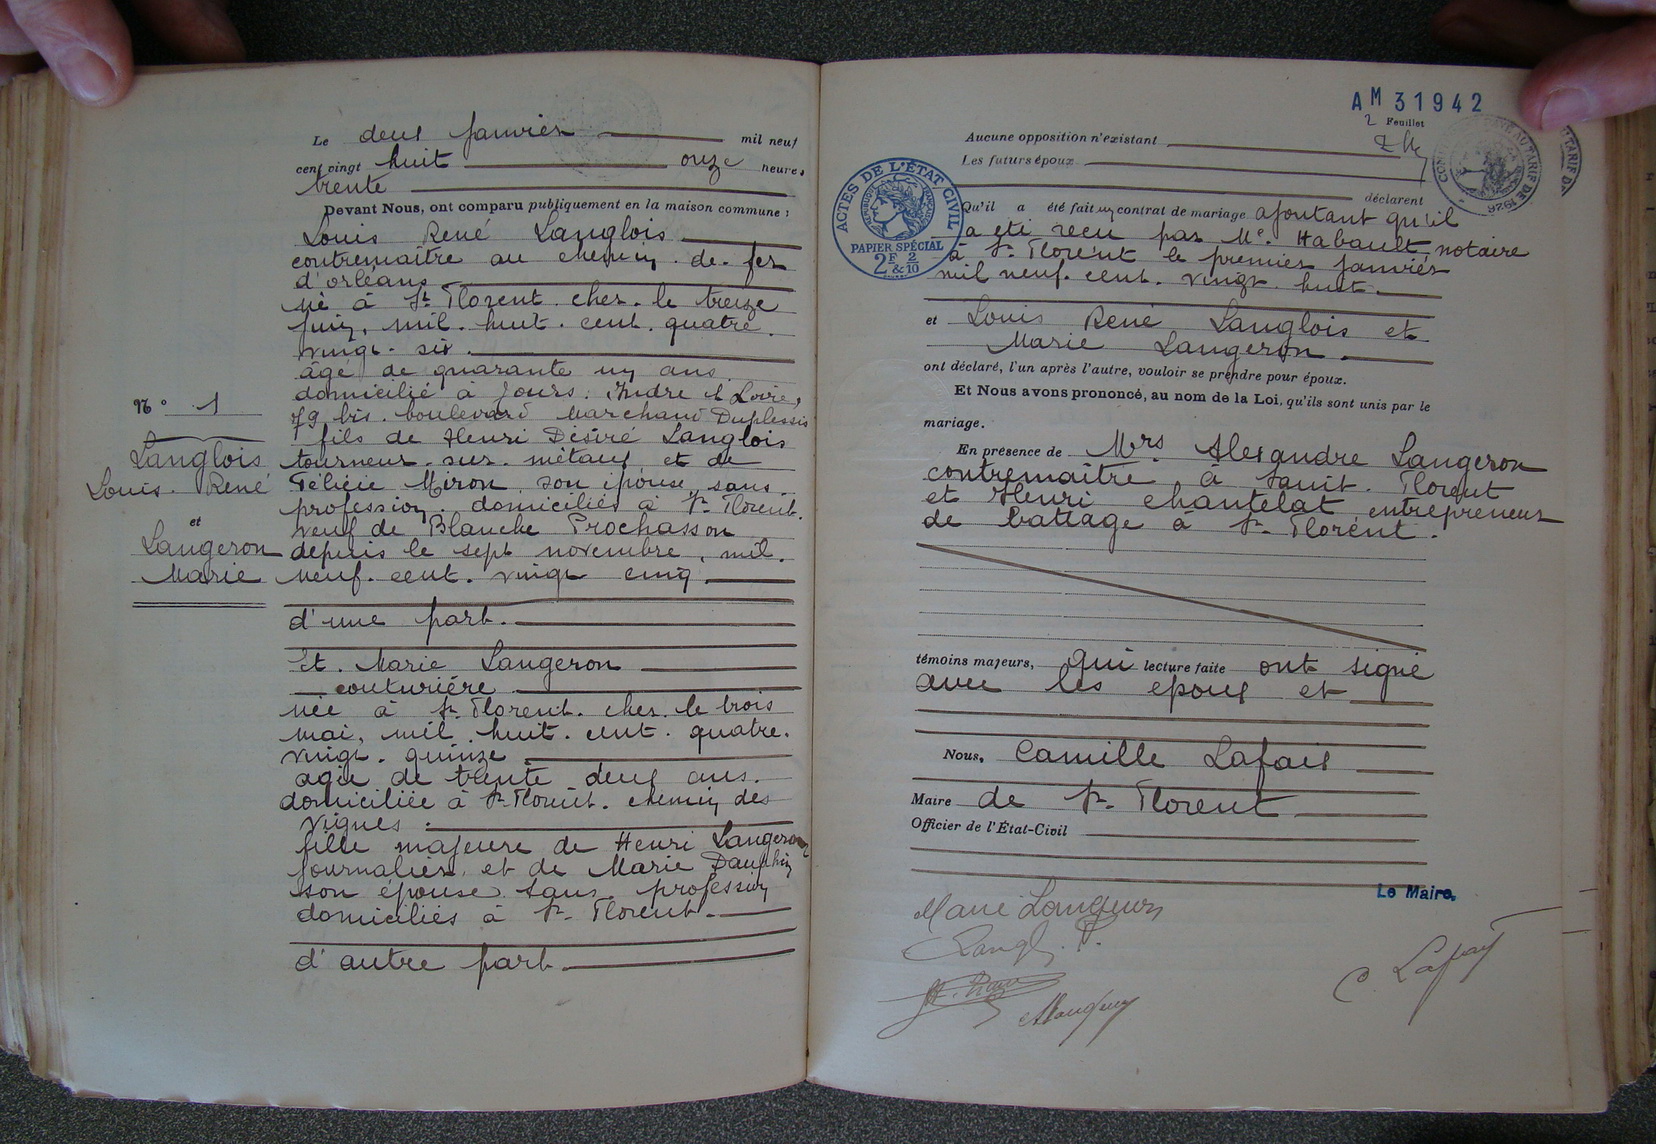 Le deux janvier mil neuf
cent vingt huit onze heures
trente
Devant Nous, ont comparu publiquement en la maison commune :
Louis René Langlois
contremaître au chemin. de. fer
d'orléans
né à St Florent. cher. le treize
juin, mil. huit. cent. quatre.
vingt. six.
âgé de quarante un ans.
domicilié à Tours. Indre et Loire,
79 bis. boulevard Marchand Duplessis
fils de Henri Désiré Langlois
tourneur. sur. métaux et de
Félicie Miron, son épouse, sans.
profession. domiciliés à St. Florent.
veuf de Blanche Prochasson
depuis le sept novembre, mil.
neuf. cent. vingt cinq.
d'une part.
Et. Marie Langeron
couturière
née à St. Florent. cher. le trois
mai, mil. huit. cent. quatre.
vingt. quinze
agée de trente deux ans.
domiciliée à St Florent. chemin des
vignes.
fille majeure de Henri Langeron
journalier, et de Marie Dauphin
son épouse sans. profession
domiciliés à St. Florent.
d'autre part.
N° 1
Langlois
Louis. René
et
Langeron
Marie
AM 31942
2 Feuillet
Aucune opposition n'existant
Les futurs époux.
déclarent
ACTES DE L'ÉTAT CIVIL
RÉPUBLIQUE FRANÇAISE
PAPIER SPÉCIAL
2F & 2/10
Qu'il a été fait un contrat de mariage ajoutant qu'il
a été reçu par Me. Habault, notaire
à St. Florent le premier janvier
mil neuf. cent. vingt. huit.
et Louis René Langlois et
Marie Langeron.
ont déclaré, l'un après l'autre, vouloir se prendre pour époux.
Et Nous avons prononcé, au nom de la Loi, qu'ils sont unis par le
mariage.
En présence de Mrs Alexandre Langeron
contremaître à Saint. Florent
et Henri Chantelat, entrepreneur
de battage à St. Florent.
témoins majeurs, qui lecture faite ont signé
avec les époux et
Nous, Camille Lafaix
Maire de St. Florent
Officier de l'État-Civil
Le Maire,
Marie Langeron
C. Lafaix